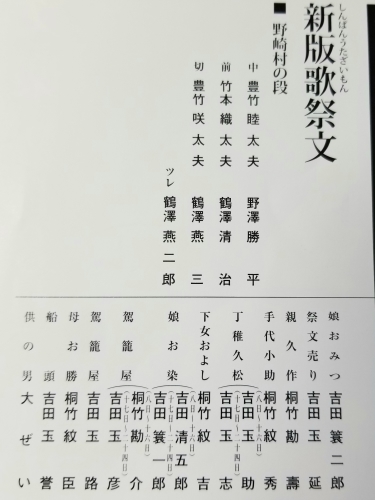 しんぱんうたざいもん
新版歌祭文
■ 野崎村の段
中 豊竹睦太夫 野澤勝平
前 竹本織太夫 鶴澤清治
切 豊竹咲太夫 鶴澤燕三
ツレ 鶴澤燕二郎
娘おみつ 吉田簑二郎
祭文売り 吉田玉延
親久作 桐竹勘壽
手代小助 桐竹紋秀
丁稚久松 (八日〜十六日) 吉田玉助
(十七日〜二十四日) 吉田玉志
下女およし 桐竹紋吉
娘お染 (八日〜十六日) 吉田清五郎
(十七日〜二十四日) 吉田簑一郎
駕籠屋 (八日〜十六日) 桐竹勘介
(十七日〜二十四日) 吉田玉彦
駕籠屋 吉田玉路
母お勝 桐竹紋臣
船頭 吉田玉誉
供の男 大ぜい